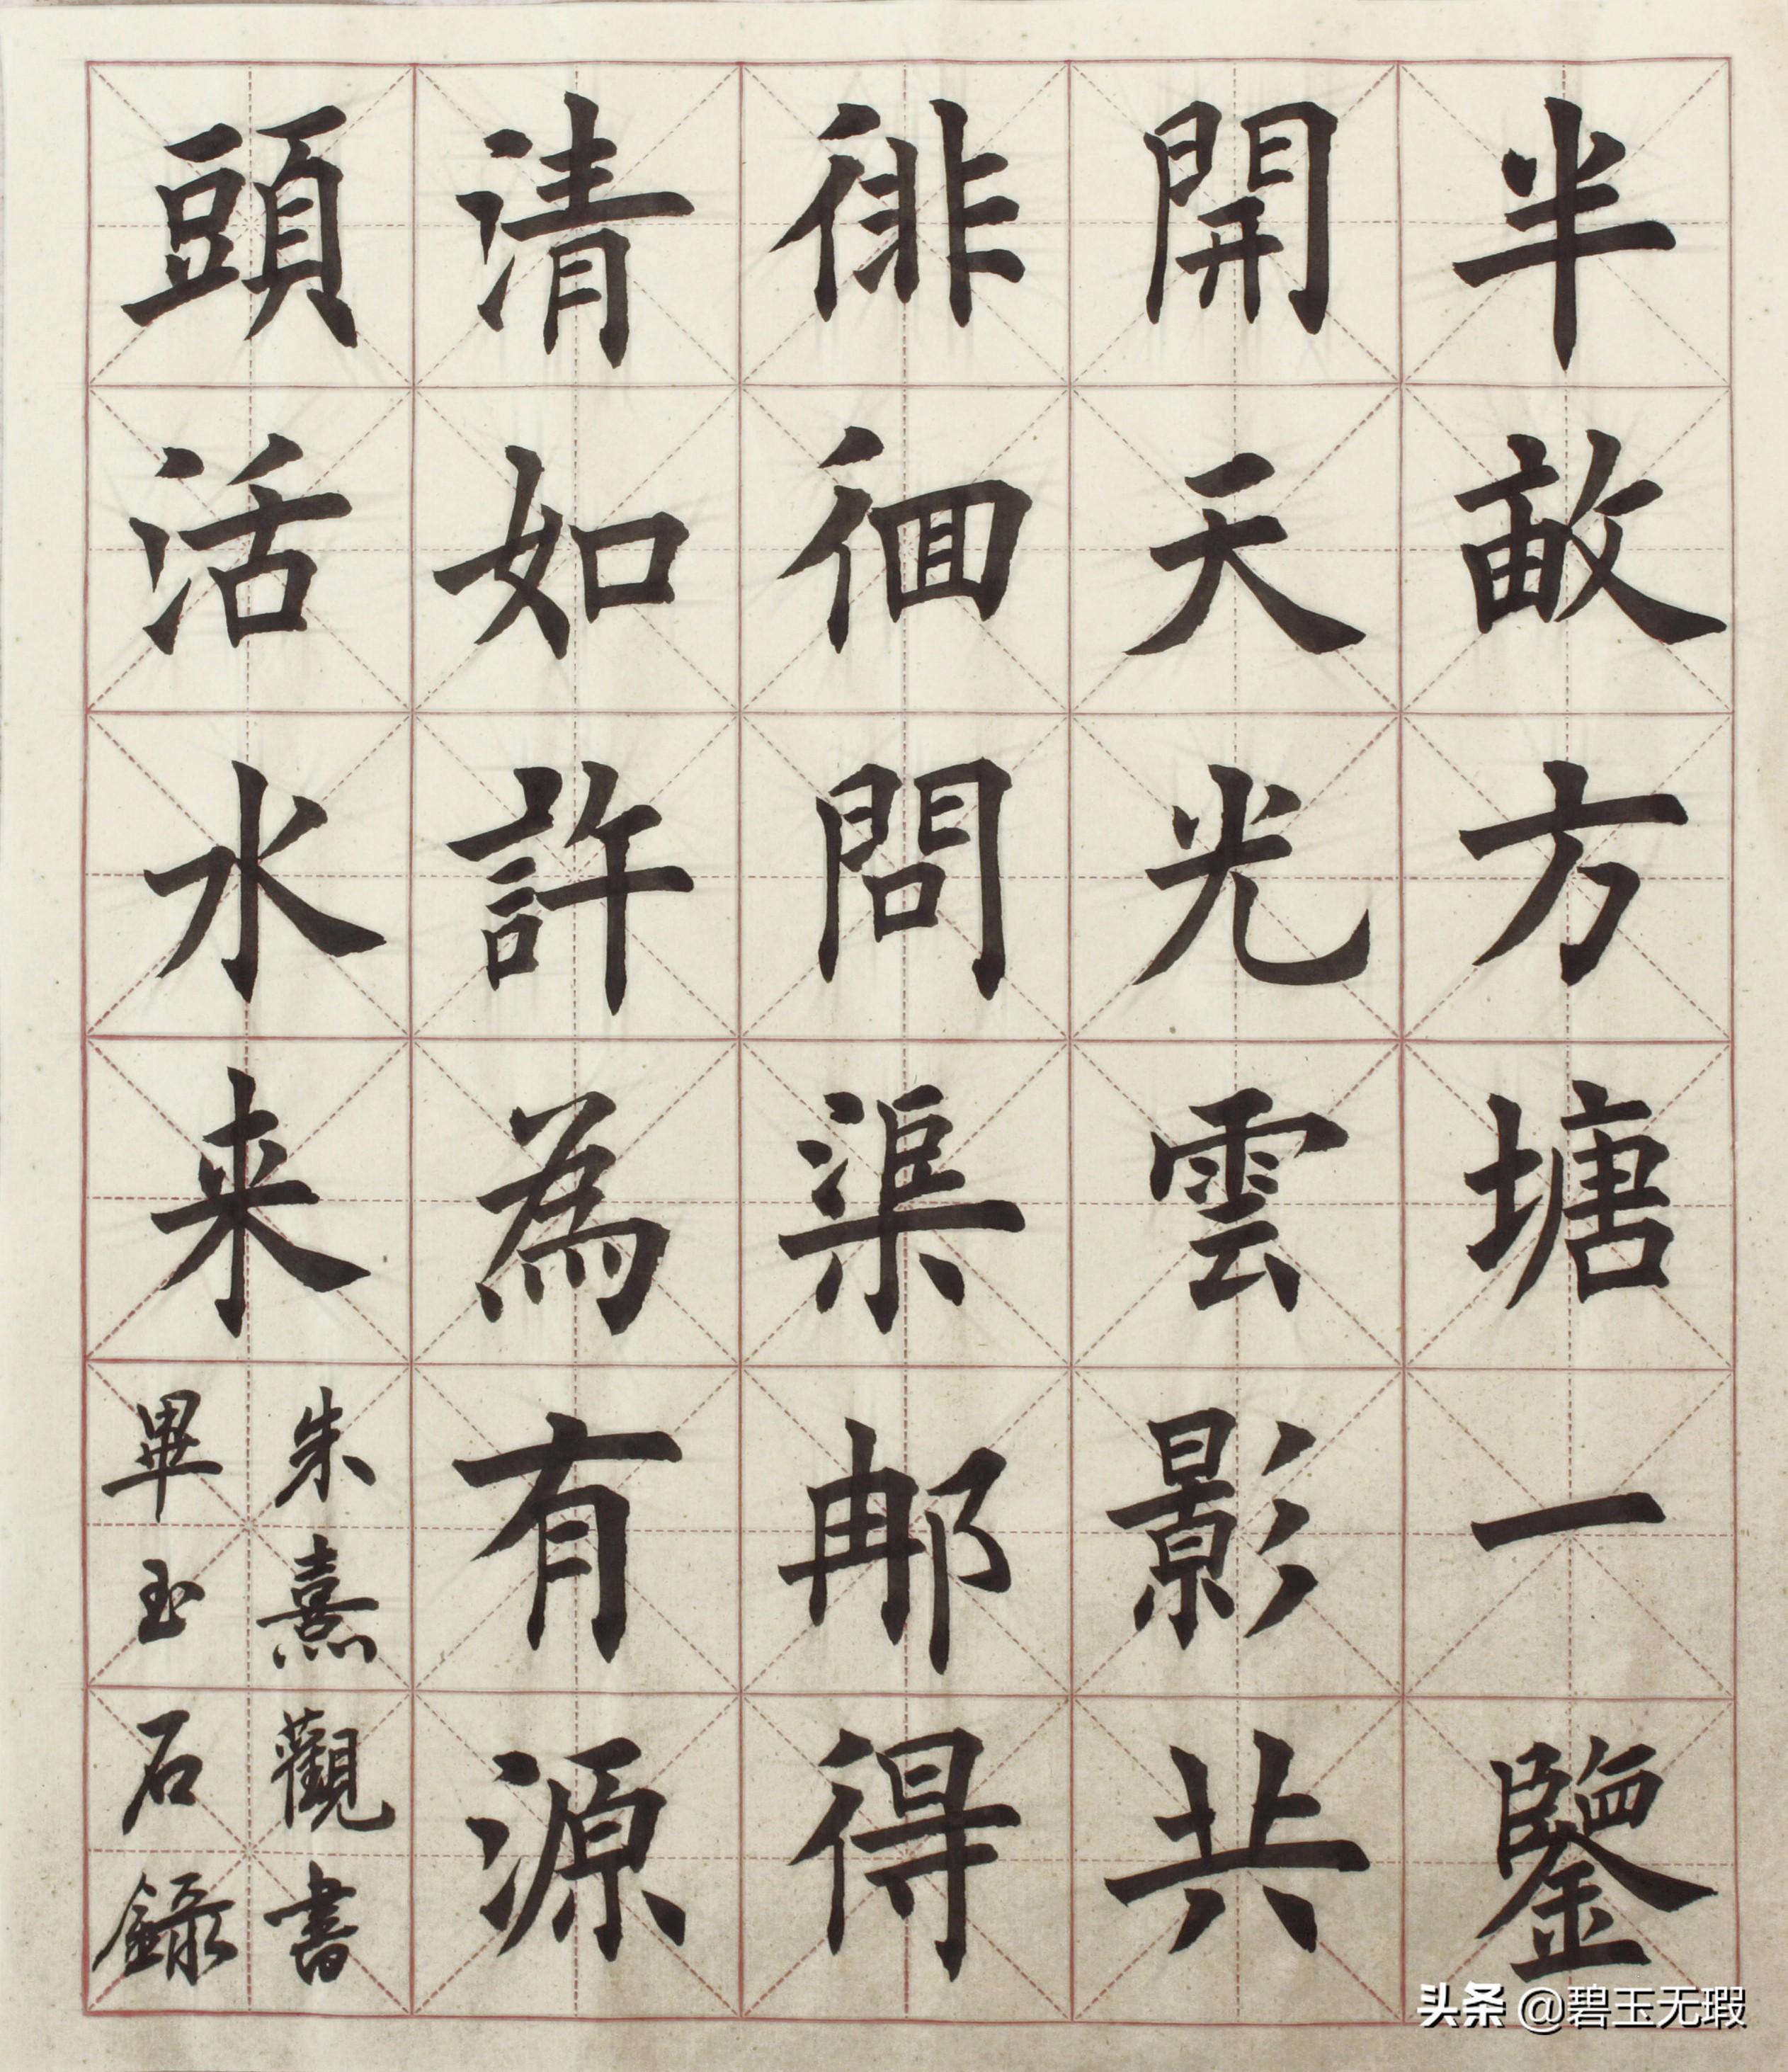 半畝方塘一鑒
開天光雲影共
徘徊問渠那得
清如許為有源
頭活水来
朱熹觀書
畢玉石錄
头条 @碧玉无瑕